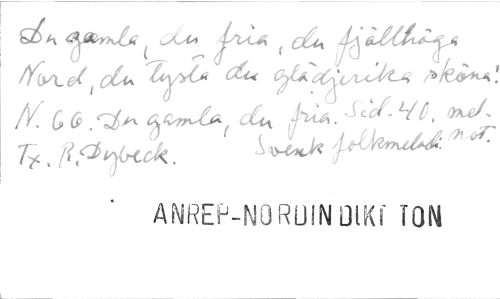 Du gamla, du fria, du fjällhöga
Nord, du tysta du glädjerika sköna!
N. 66. Du gamla, du fria. Sid. 40. mel-
Tx. R. Dybeck. Svensk folkmelodi. not.
ANREP-NORDIN DIKT TON